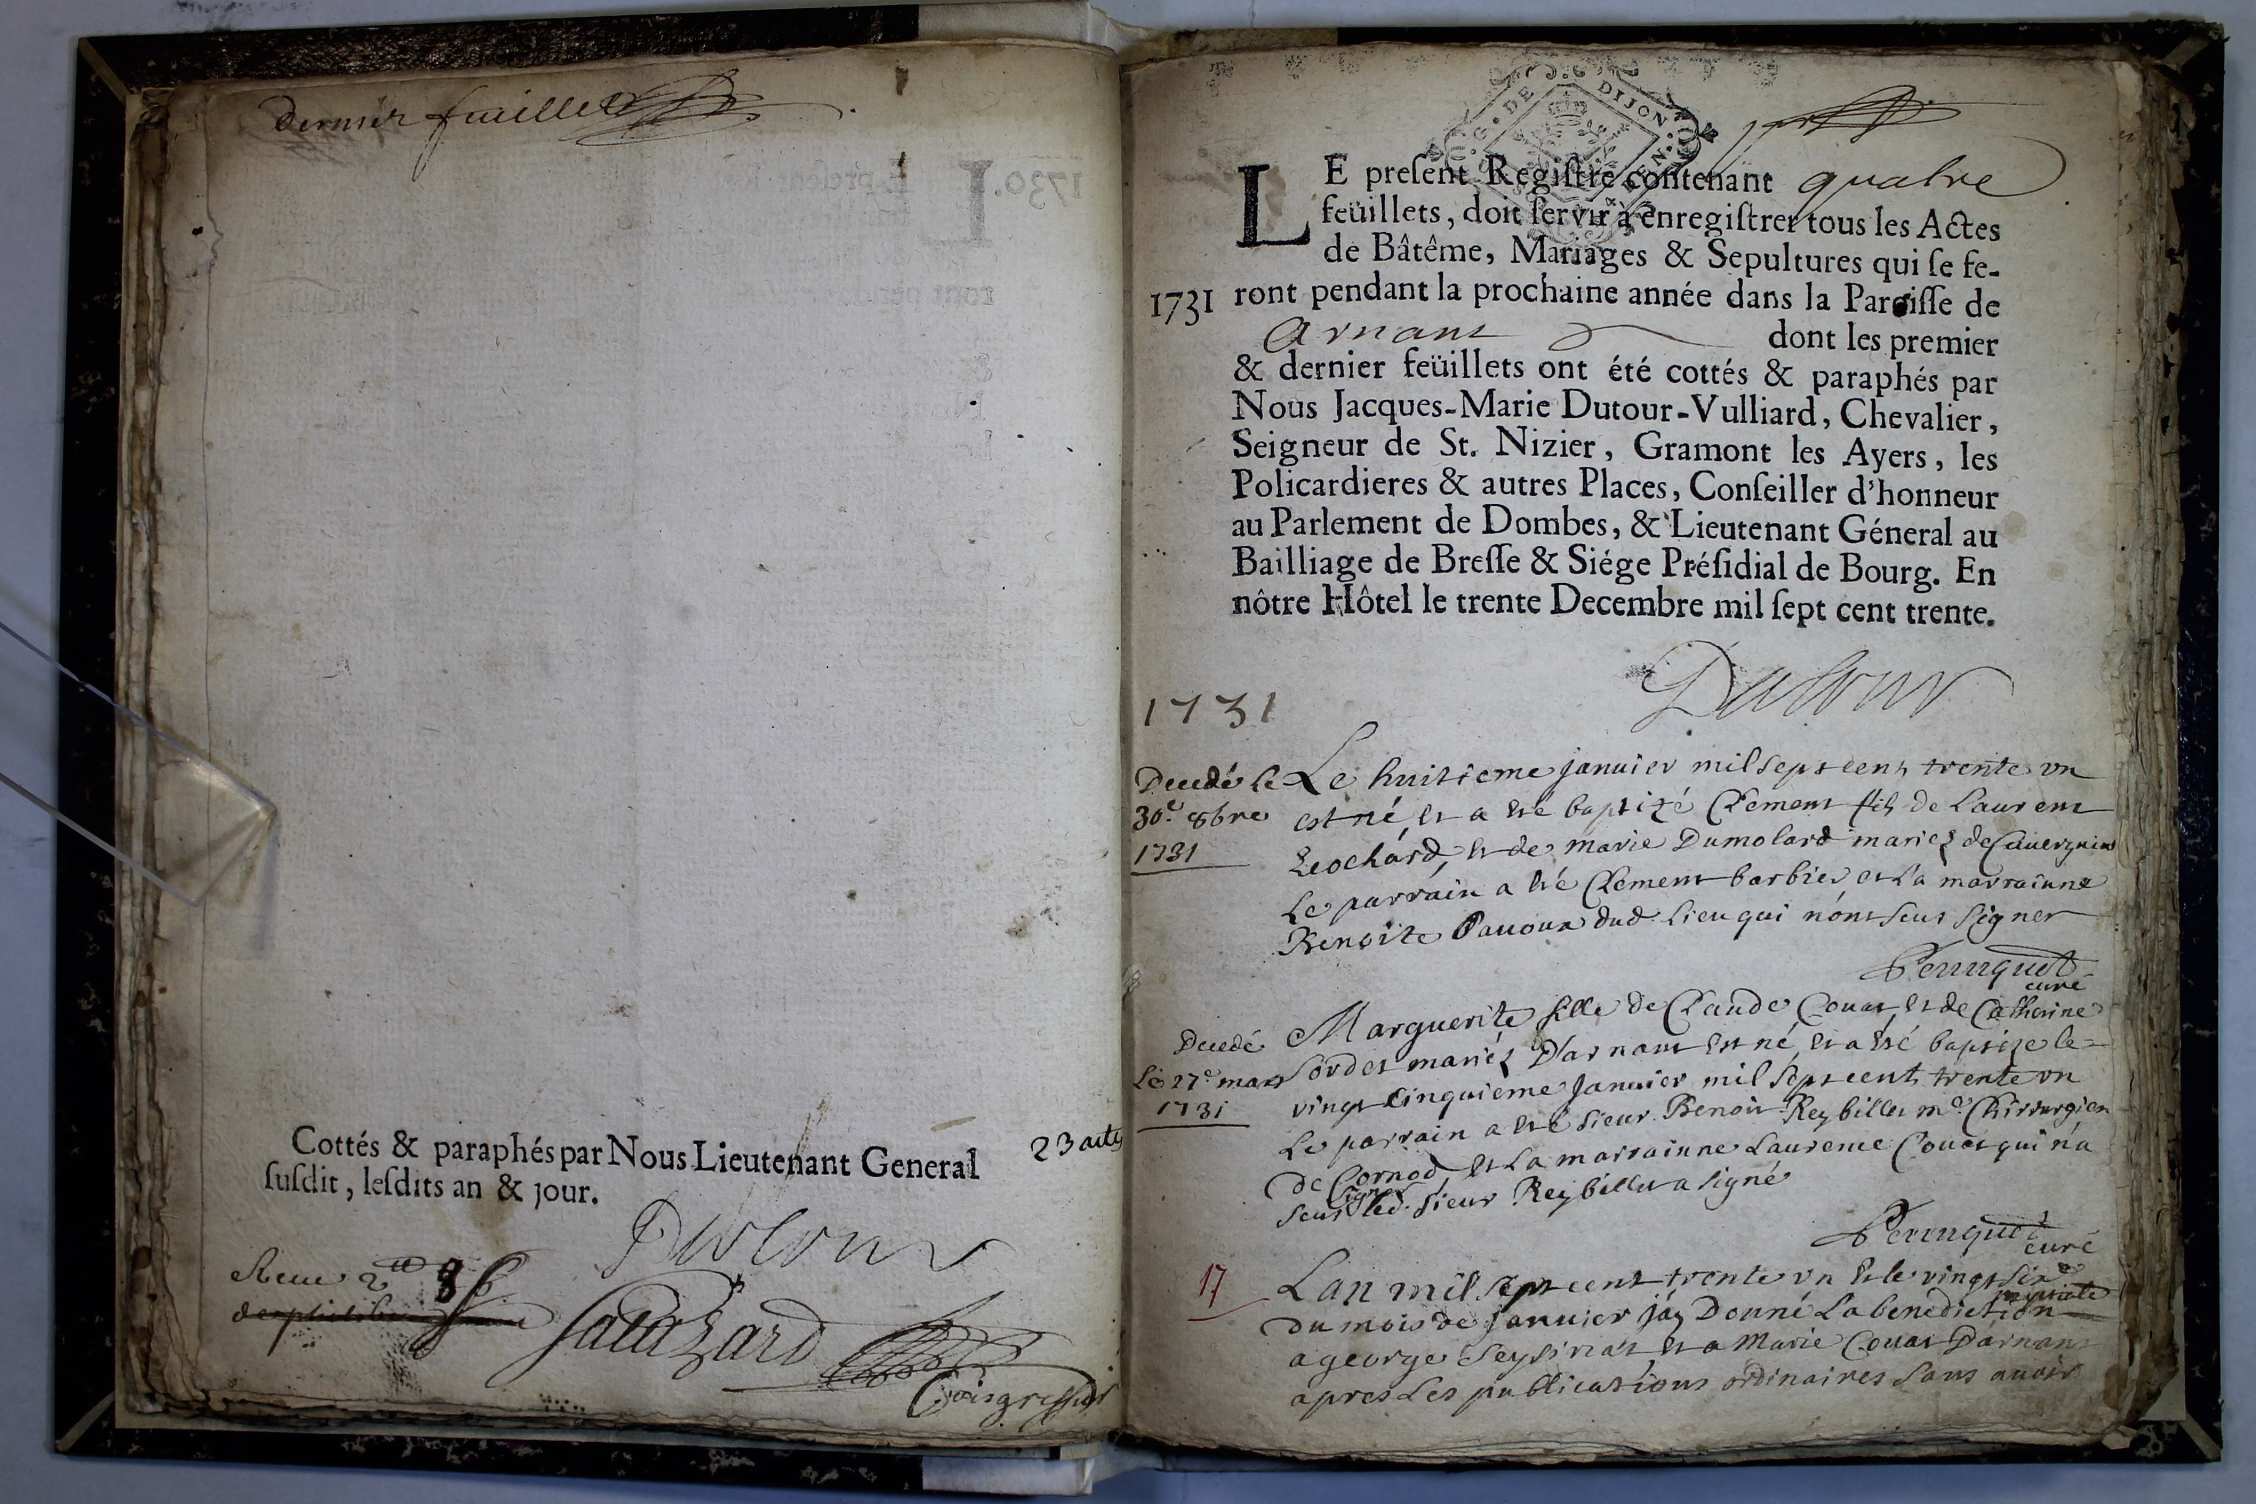 dernier feuillet
Cottés & paraphés par Nous Lieutenant General
ſuſdit, leſdits an & jour.
23 actes
Dutour
DIJON
premier
LE preſent Regiſtre contenant quatre
feüillets, doit ſervir à enregiſtrer tous les Actes
de Bâtême, Mariages & Sepultures qui ſe fe-
1731 ront pendant la prochaine année dans la Paroiſſe de
Arnans dont les premier
& dernier feüillets ont été cottés & paraphés par
Nous Jacques-Marie Dutour-Vulliard, Chevalier,
Seigneur de St. Nizier, Gramont les Ayers, les
Policardieres & autres Places, Conſeiller d'honneur
au Parlement de Dombes, & Lieutenant Géneral au
Bailliage de Breſſe & Siége Préſidial de Bourg. En
nôtre Hôtel le trente Decembre mil ſept cent trente.
Dutour
1731
Decedé le
30e 8bre
1731
Le huitieme janvier mil sept cent trente un
est né, et a été baptizé Clement fils de Laurent
et de marie Dumolard mariez de
Le parrain a été Clement barbier et la marrainne
Benoite dud. lieu qui n'ont sceus signer
curé
Decedé
Le 27e mars
1731
Marguerite fille de Claude Couat, et de Catherine
Sordet mariéz D'arnans est né, et a été baptize le
vingt cinquieme Janvier mil sept cent trente un
Le parrain a été sieur Benoit Reybillet me Chirurgien
de Cornod, et la marrainne Laurence Couat qui n'a
sceus signer led. sieur Reybillet a signé
curé
17
L'an mil sept cent trente un et le vingt sixe
du mois de janvier jáy Donné La benediction nuptiale
a george Seyssirat et a Marie Couat D'arnans
apres Les publications ordinaires sans auoir